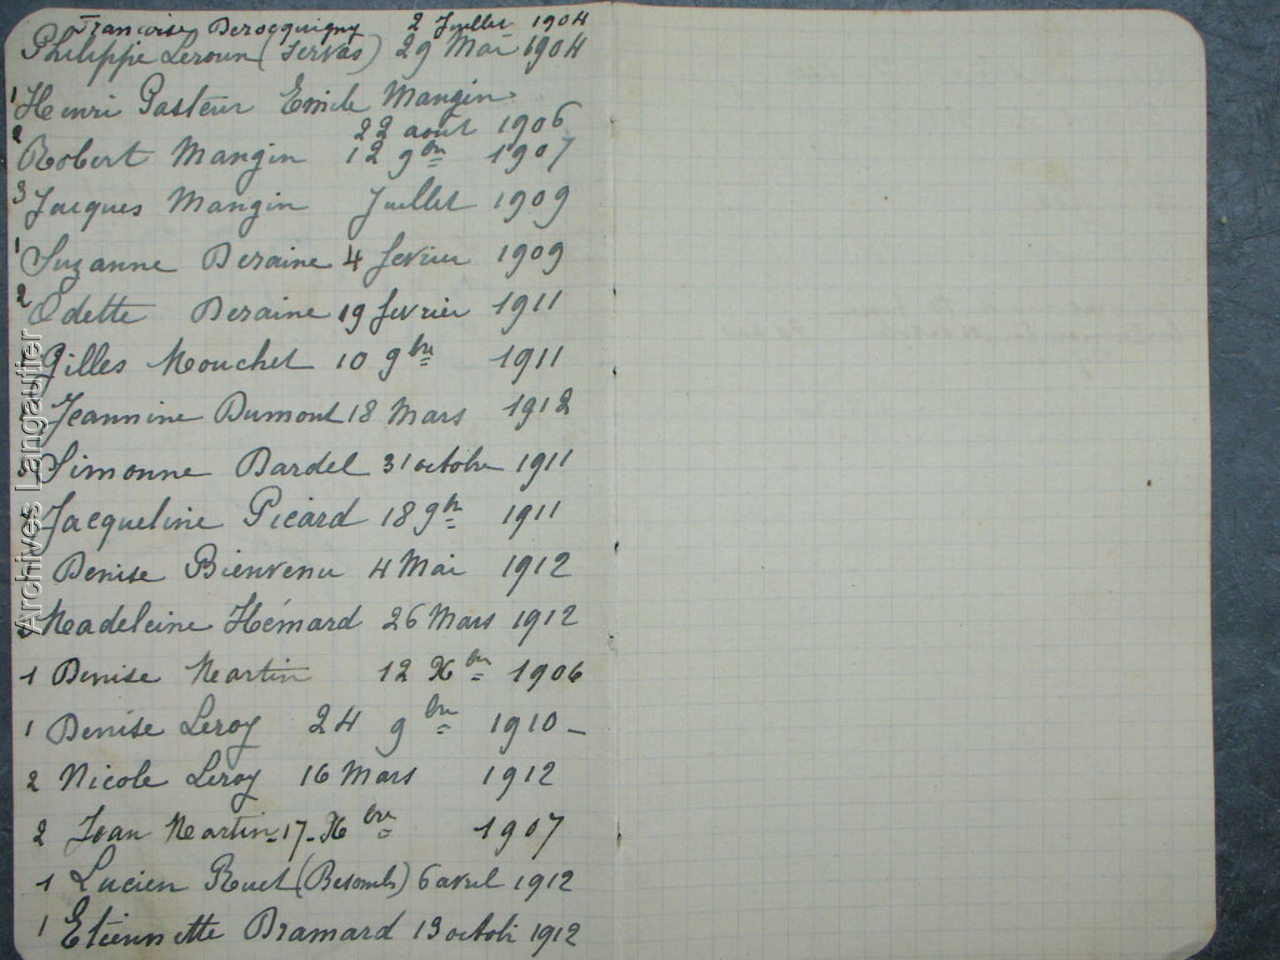 Françoise Derocquigny 2 Juillet 1904
Philippe Leroun (Servas) 29 Mai 1904
1 Henri Pasteur Emile Mangin
22 août 1906
2 Robert Mangin 12 9bre 1907
3 Jacques Mangin Juillet 1909
1 Suzanne Deraine 4 fevrier 1909
2 Odette Deraine 19 fevrier 1911
Gilles Mouchet 10 9bre 1911
Jeannine Dumont 18 Mars 1912
Simonne Dardel 31 octobre 1911
Jacqueline Picard 18 9bre 1911
Denise Bienvenu 4 Mai 1912
Madeleine Hémard 26 Mars 1912
1 Denise Martin 12 Xbre 1906
1 Denise Leroy 24 9bre 1910 -
2 Nicole Leroy 16 Mars 1912
2 Jean Martin - 17 - Xbre 1907
1 Lucien Ruet (Besombs) 6 avril 1912
1 Etiennette Dramard 13 octobre 1912
Archives Langautier